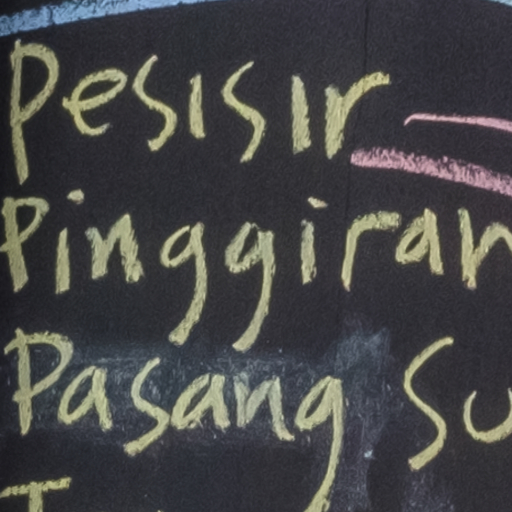 Pesisir
Pinggiran
Pasang Su
T